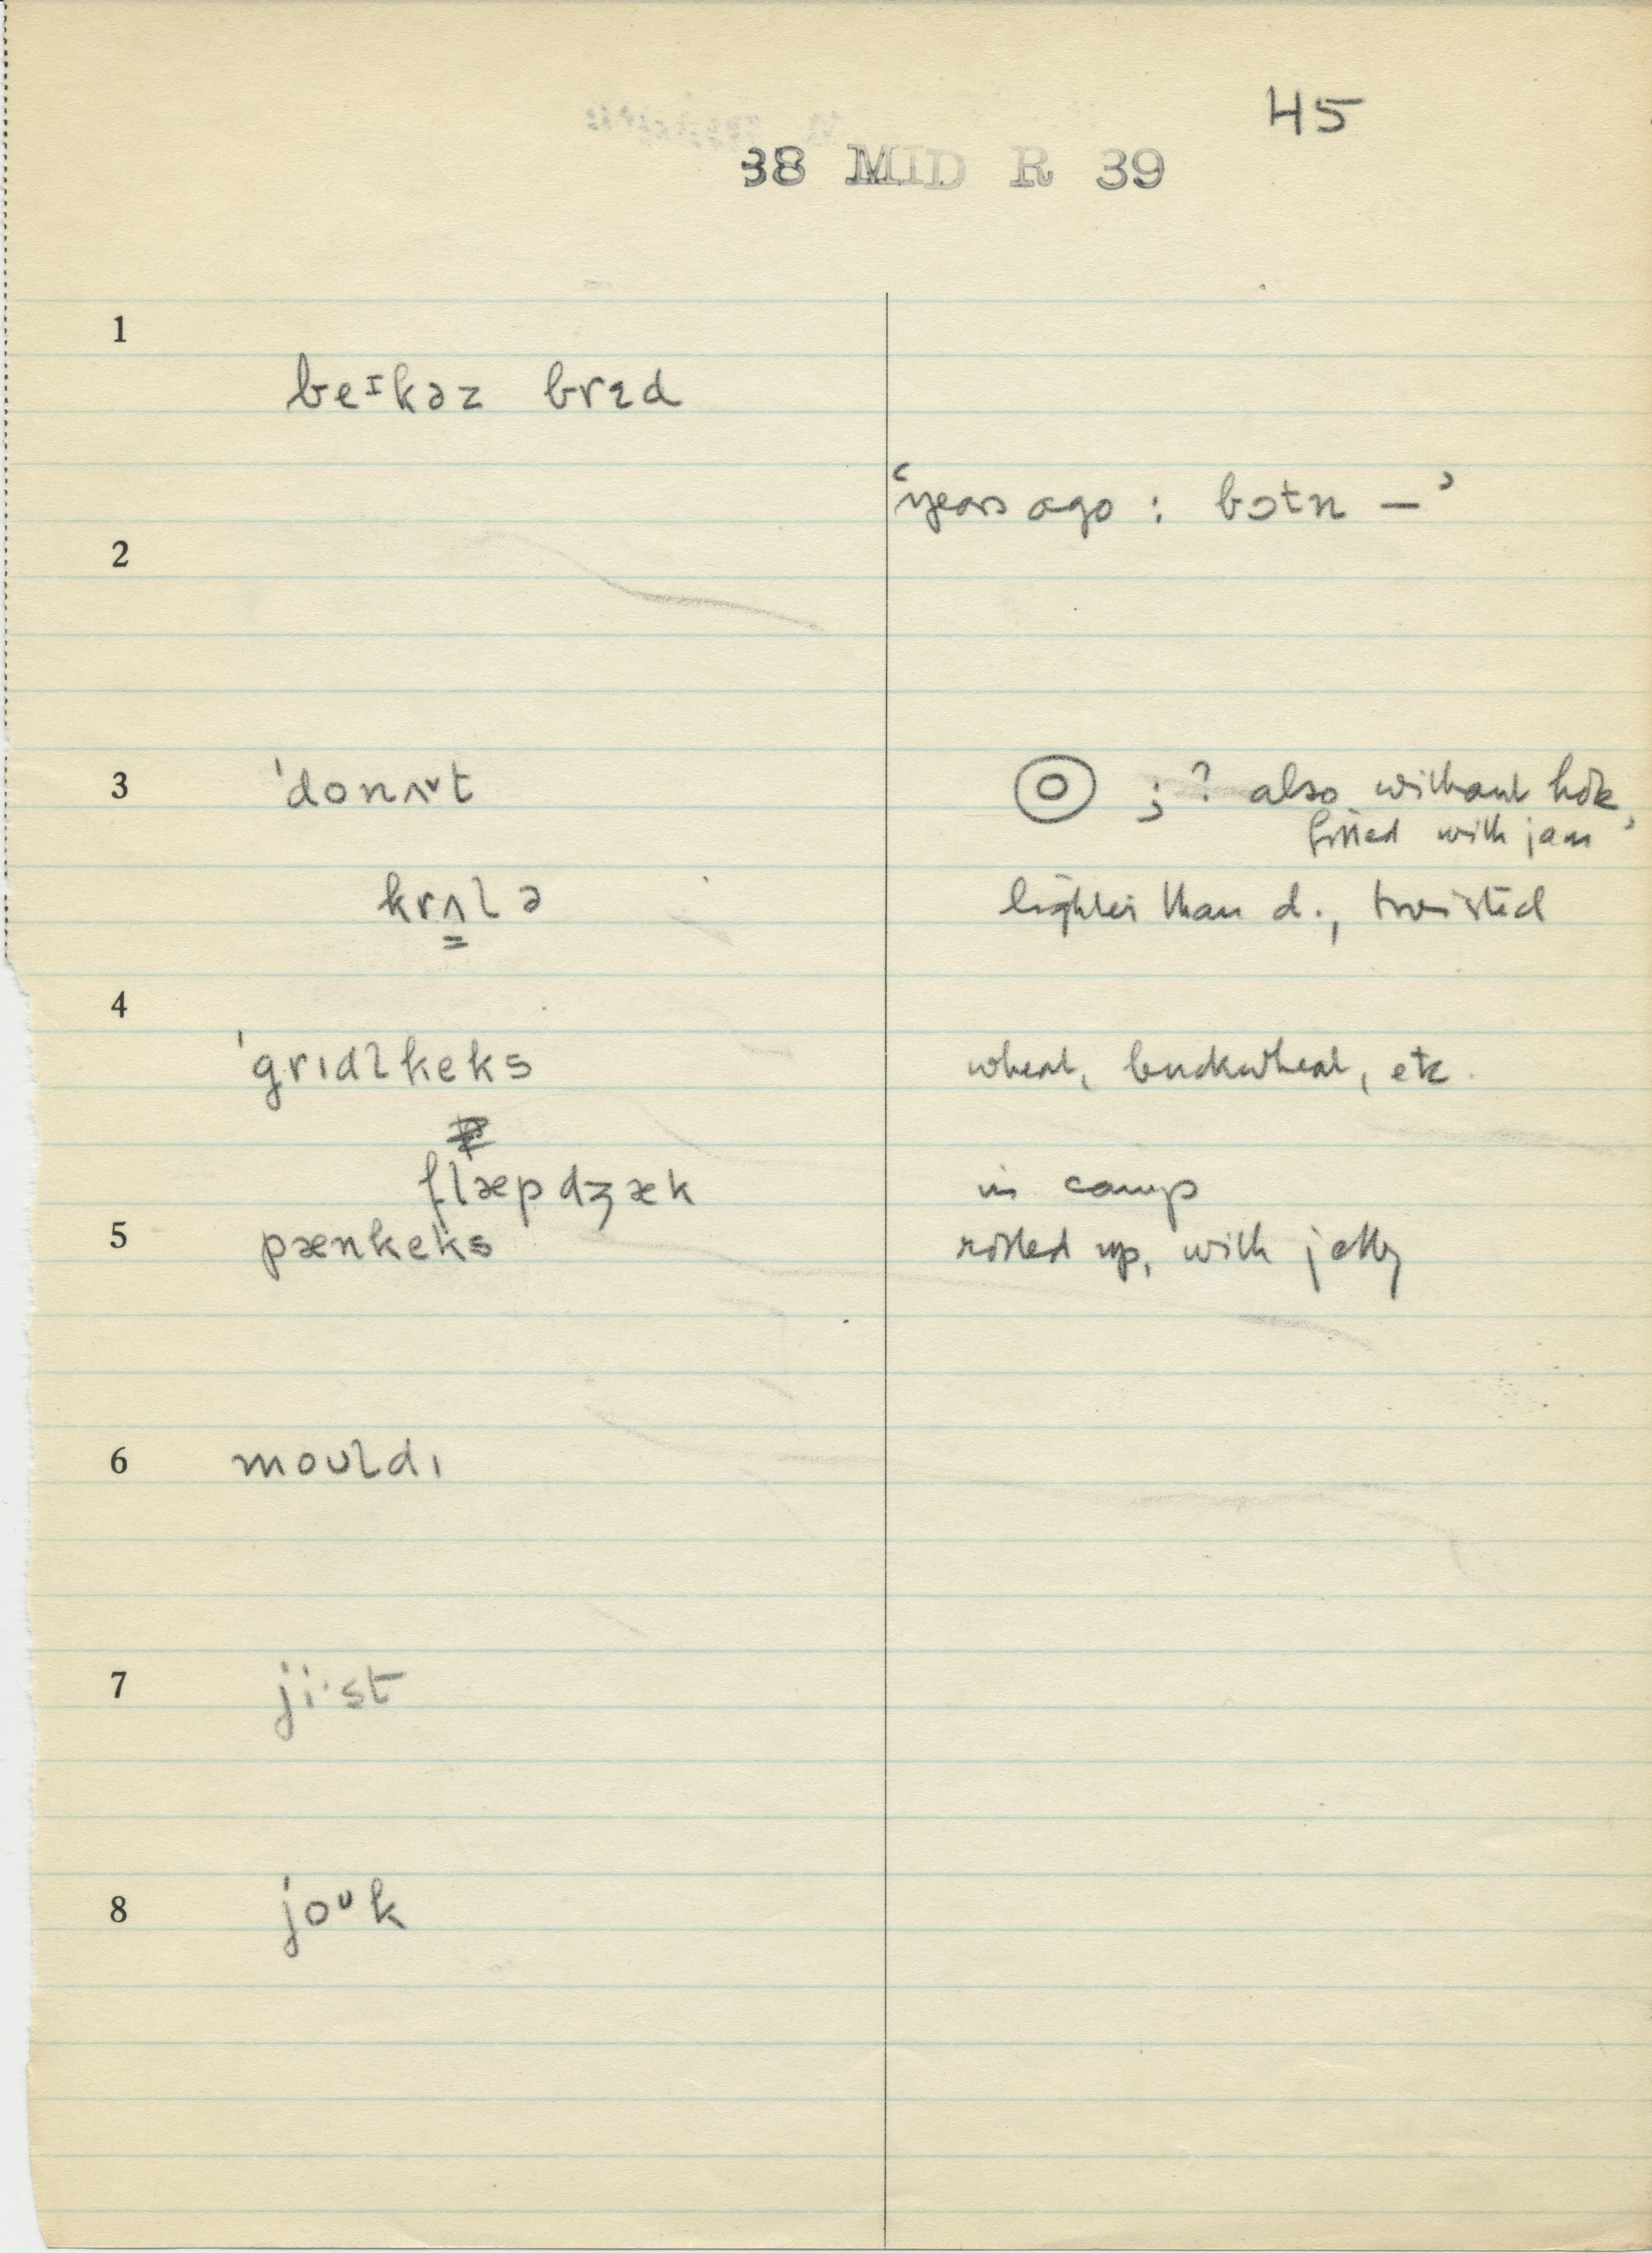 45
38 MID R 39
1
beᶦkəz brɛd
'years ago : bɔtn —'
2
3 ˈdonʌ˅t ; ? also without hole,
filled with jam'
krʌlə lighter than d., twisted
4
ˈgrɪdlkeks wheat, buckwheat, etc.
flæpdʒæk in camp
5 pænkeks rolled up, with jelly
6 moʊldɪ
7 ji·st
8 joᶷk